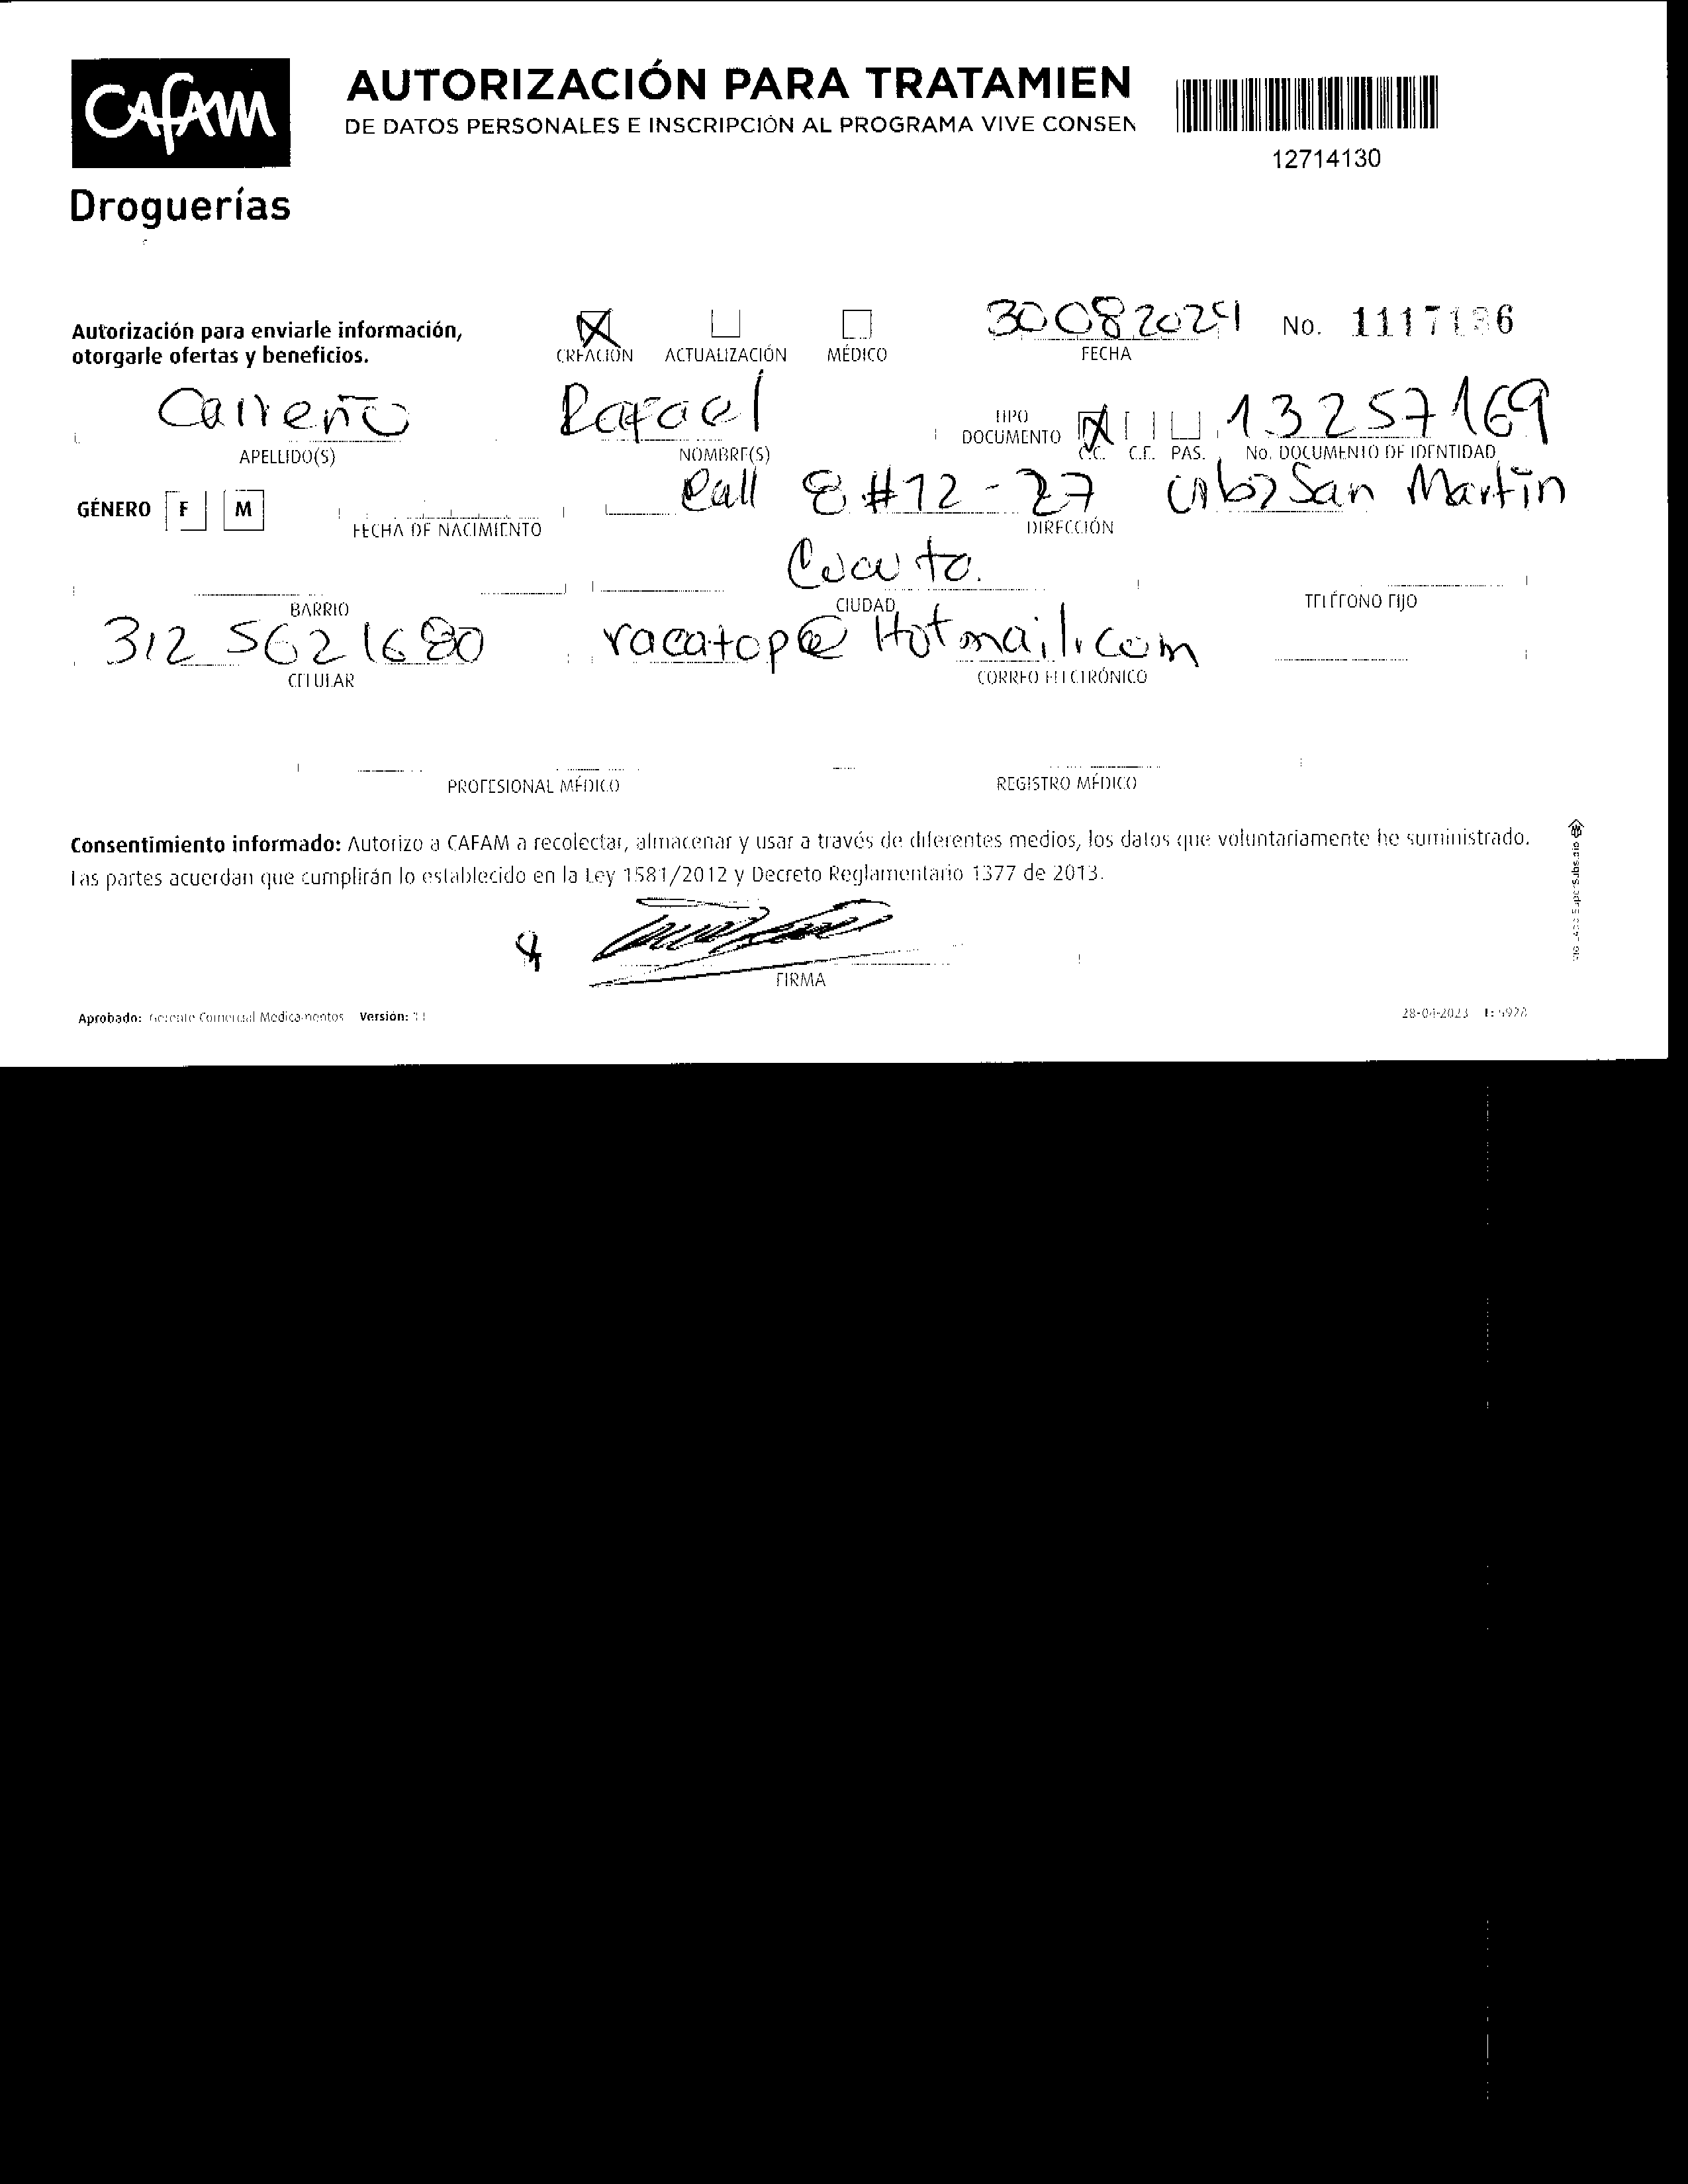 CAFAM
Droguerías
AUTORIZACIÓN PARA TRATAMIEN
DE DATOS PERSONALES E INSCRIPCIÓN AL PROGRAMA VIVE CONSEN
12714130
Autorización para enviarle información,
otorgarle ofertas y beneficios.
CREACIÓN ACTUALIZACIÓN MÉDICO
30082024 No. 1117186
FECHA
Carreño Rafael TIPO DOCUMENTO 13257169
APELLIDO(S) NOMBRE(S) C.C. C.E. PAS. No. DOCUMENTO DE IDENTIDAD
GÉNERO F M Call 8 #12-27 San Martin
FECHA DE NACIMIENTO DIRECCIÓN
BARRIO CIUDAD TELÉFONO FIJO
312 5621680 racatop@Hotmail.com
CELULAR CORREO ELECTRÓNICO
PROFESIONAL MÉDICO REGISTRO MÉDICO
Consentimiento informado: Autorizo a CAFAM a recolectar, almacenar y usar a través de diferentes medios, los datos que voluntariamente he suministrado.
Las partes acuerdan que cumplirán lo establecido en la Ley 1581/2012 y Decreto Reglamentario 1377 de 2013.
FIRMA
Aprobado: Gerente Comercial Medicamentos Versión: 11
28-04-2023